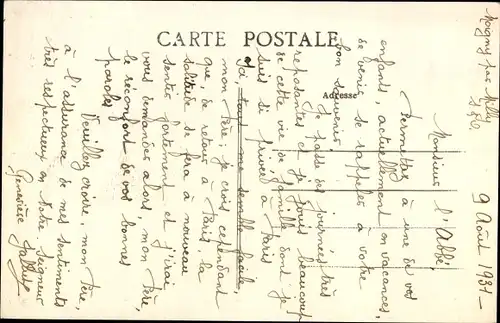 CARTE POSTALE
Adresse
Moigny par Milly
S & O.
9 Août 1931 -
Monsieur l'Abbé,
Permettez à une de vos
enfants, actuellement en vacances,
de venir se rappeler à votre
bon souvenir.
Je passe des journées très
reposantes et je jouis beaucoup
de cette vie de famille dont je
suis si privée à Paris.
Ici tout me semble facile,
mon Père; je crois cependant
que, de retour à Paris, la
solitude se fera à nouveau
sentir fortement et j'irai
vous demander alors, mon Père,
le réconfort de vos bonnes
paroles.
Veuillez croire, mon Père,
à l'assurance de mes sentiments
très respectueux en Notre Seigneur
Geneviève